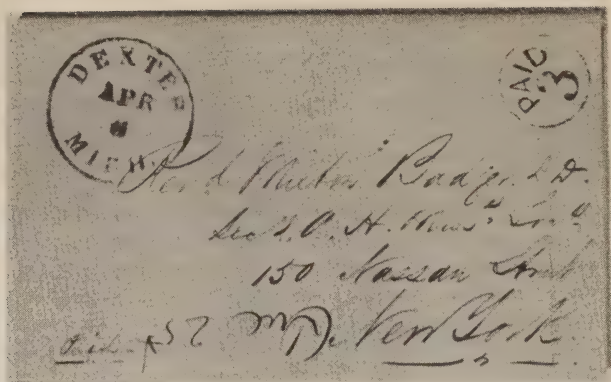 DEXTER
APR
8
MICH.
PAID
3
Rev. Milton Badger D.D.
Sec A. H. Miss. Soc.
150 Nassau Street
New York.